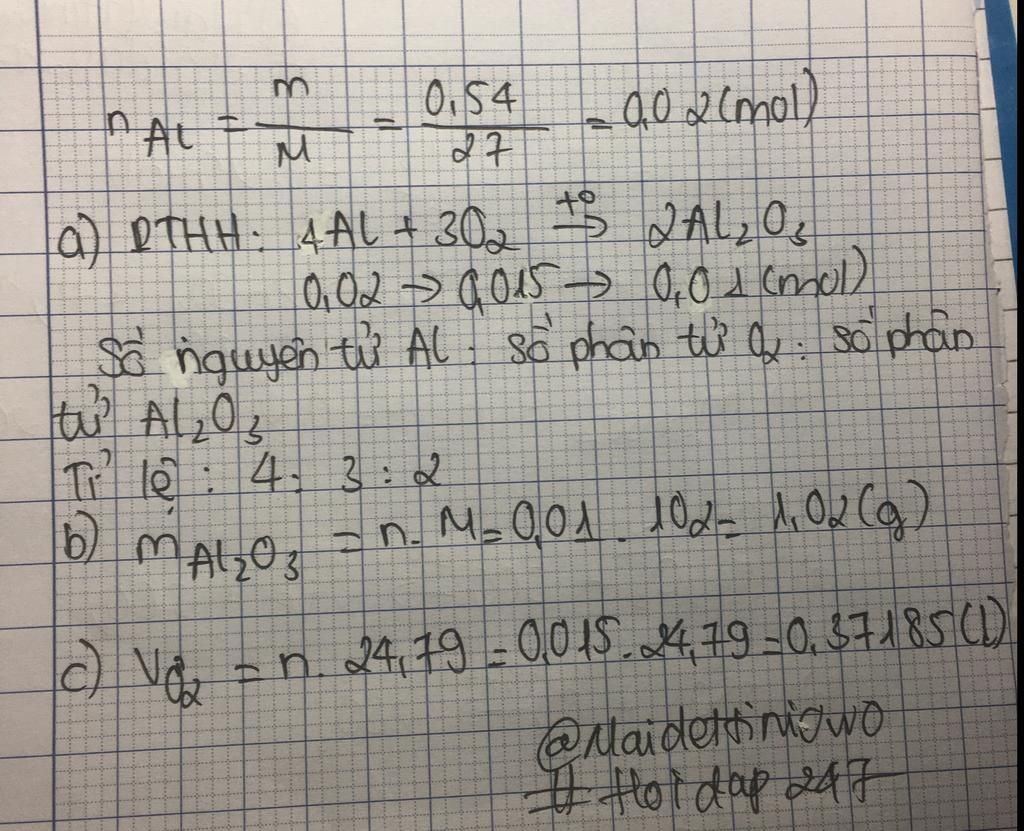 n Al = m/M = 0,54/27 = 0,02 (mol)
a) PTHH: 4Al + 3O₂ →(t°) 2Al₂O₃
0,02 → 0,015 → 0,01 (mol)
Số nguyên tử Al : số phân tử O₂ : số phân
tử Al₂O₃
Tỉ lệ : 4 : 3 : 2
b) m Al₂O₃ = n. M = 0,01 . 102 = 1,02 (g)
c) V O₂ = n. 24,79 = 0,015 . 24,79 = 0,37185 (l)
# Hoidap 247